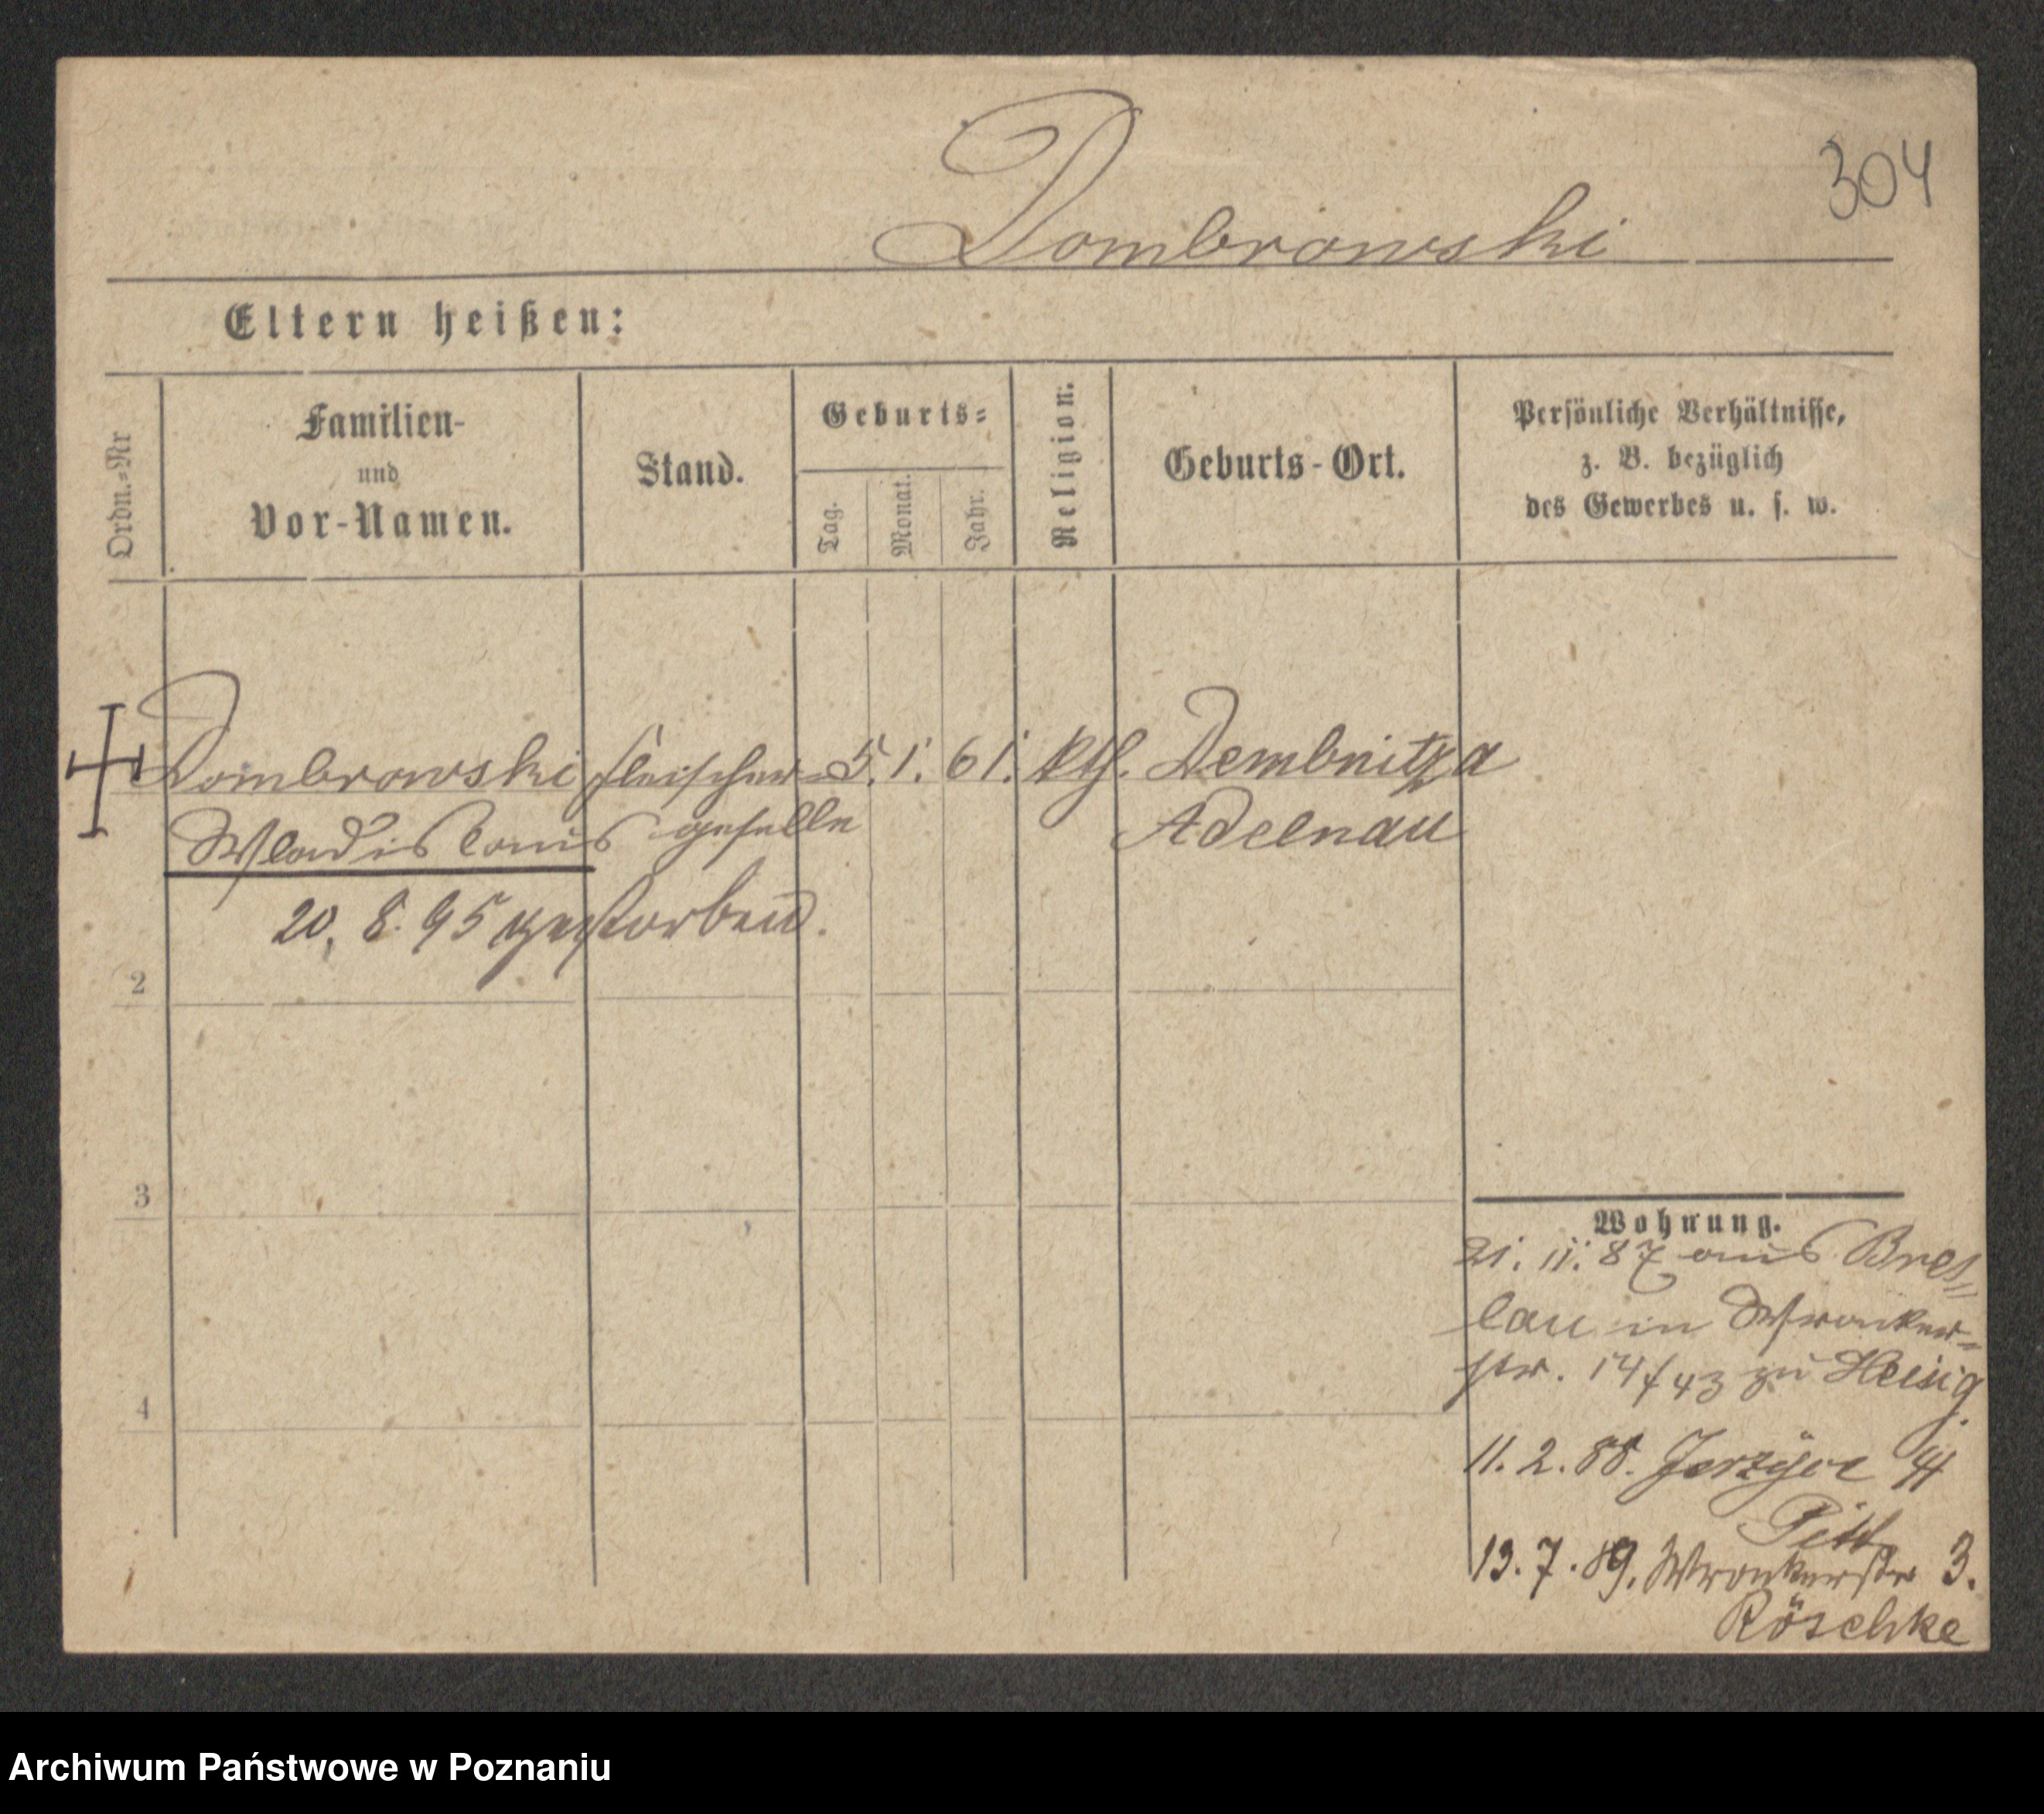 304
Dombrowski
Eltern heißen:
Ordn.=Nr
Familien-
und
Vor-Namen.
Stand.
Geburts=
Tag.
Monat.
Jahr.
Religion.
Geburts-Ort.
Persönliche Verhältnisse,
z. B. bezüglich
des Gewerbes u. s. w.
Dombrowski Fleischer= 5. 1. 61. kth. Dembnitza
Wladislaus geselle Adelnau
20. 8. 95 gestorben.
2
3
4
Wohnung.
21. 11. 87 aus Bres=
lau in Wronker=
str. 14/43 zu Heisig.
11. 2. 88. Jerzyce
13. 7. 89. Wronkerstr 3.
Röschke
Archiwum Państwowe w Poznaniu